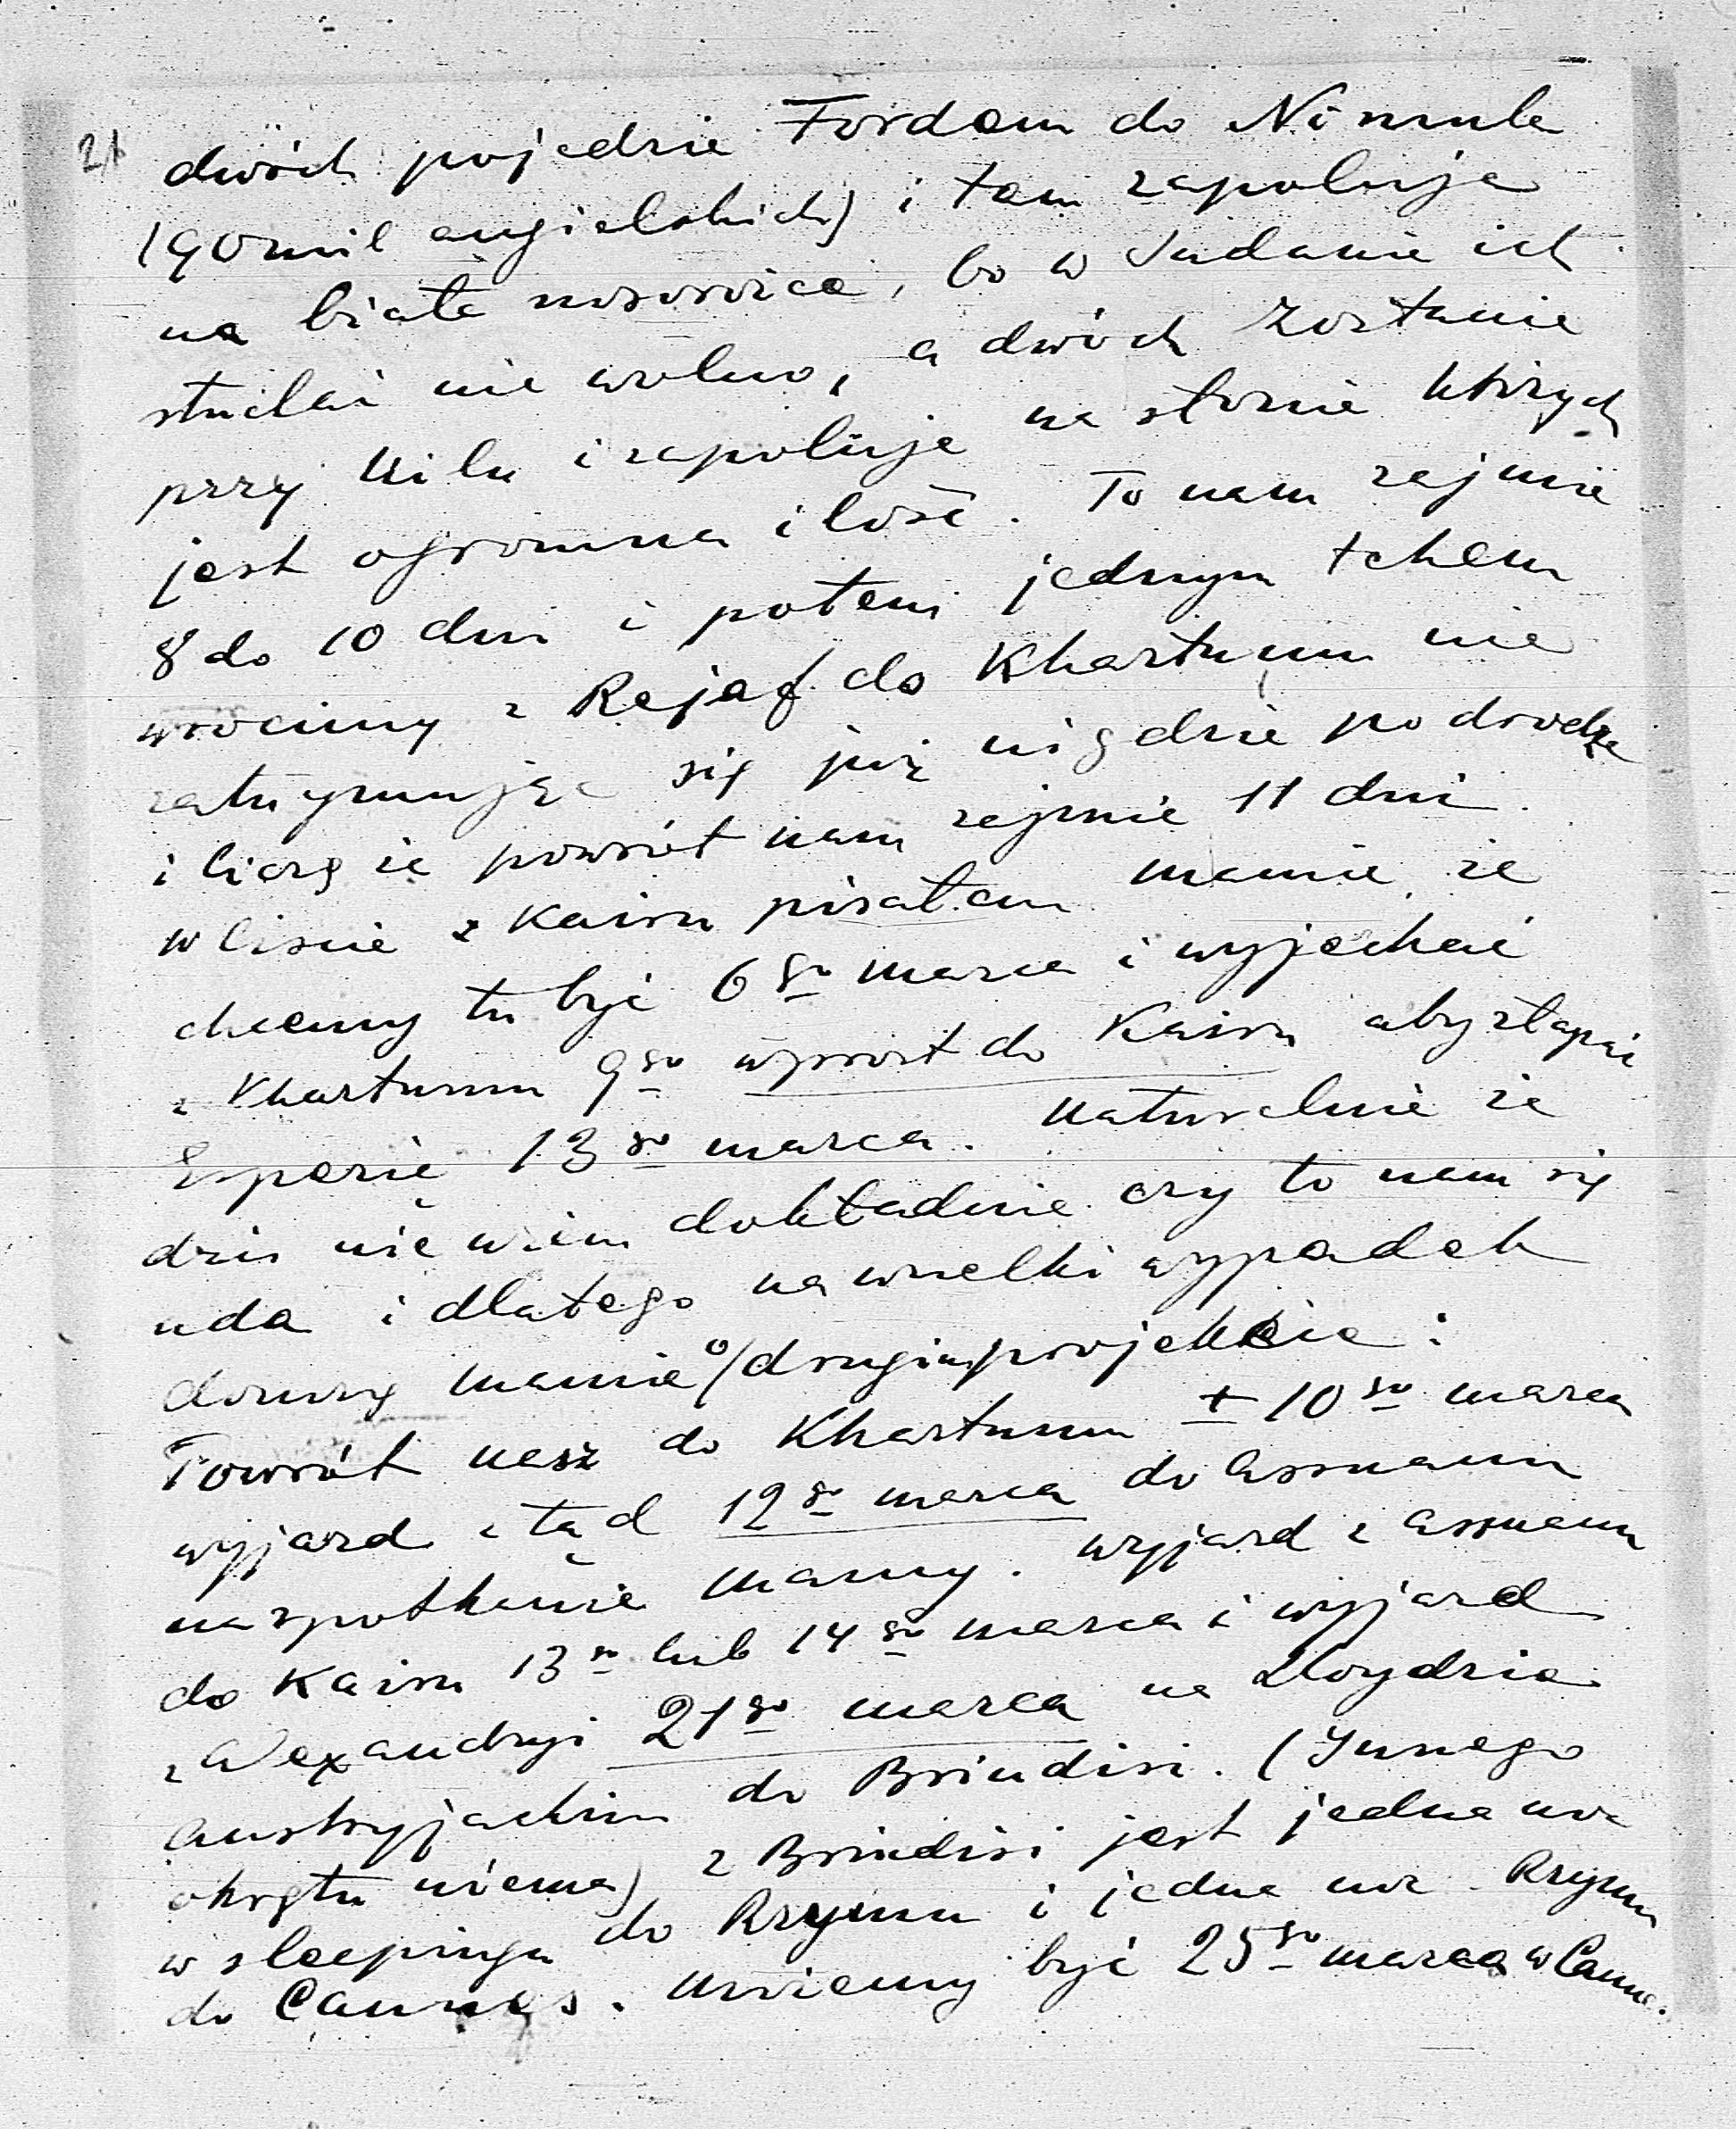 2)
dwóch pojedzie Fordem do Nimule
(90 mil angielskich) i tam zapoluje
na białe nosorożce, bo w Sudanie ich
strzelać nie wolno, a dwóch zostanie
przy Nilu i zapoluje na słonie których
jest ogromna ilość. To nam zajmie
8 do 10 dni i potem jednym tchem
wrócimy z Rejaf do Khartumu nie
zatrzymując się już nigdzie po drodze
i liczę że powrót nam zajmie 11 dni.
W liście z Kairu pisałem mamie, że
chcemy tu być 6go marca i wyjechać
z Khartumu 9go wprost do Kairu aby złapać
Esperię 13go marca. Naturalnie że
dziś nie wiem dokładnie czy to nam się
uda i dlatego na wszelki wypadek
donoszę mamie o/drugim projekcie:
Powrót nasz do Khartumu ± 10go marca
wyjazd stąd 12go marca do Assuanu
na spotkanie mamy. Wyjazd z Assuanu
do Kairu 13go lub 14go marca i wyjazd
z Alexandryi 21go marca na Lloydzie
Austryjackim do Brindisi. (Innego
okrętu niema) z Brindisi jest jedna noc
w sleepingu do Rzymu i jedna noc Rzymu
do Cannes. Możemy być 25go marca w Cannes.